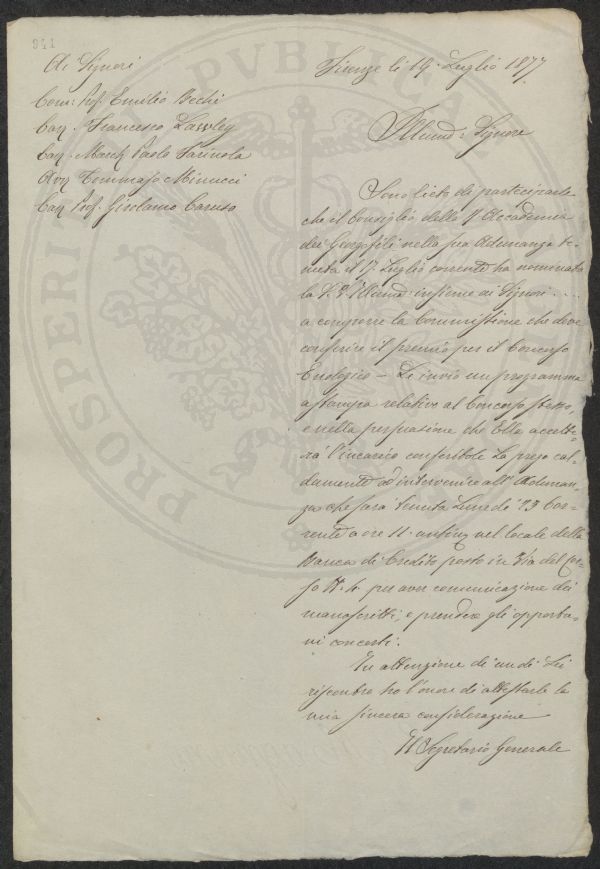 941
Ai Signori
Com: Prof. Emilio Bechi
Cav. Francesco Lawley
Cav. March. Paolo Farinola
Avv. Tommaso Minucci
Cav. Prof. Girolamo Caruso
Firenze li 19. Luglio 1877.
Illmo: Signore
Sono lieto di parteciparle
che il Consiglio della R. Accademia
dei Georgofili nella sua Adunanza te-
nuta il 17. Luglio corrente ha nominato
la V. S. Illma: insieme ai Signori ....
a comporre la Commissione che deve
conferire il premio per il Concorso
Enologico — Le invio un programma
a stampa relativo al Concorso stesso,
e nella persuasione che Ella accette-
rà l'incarico conferitole La prego cal-
damente ad intervenire all'Adunan-
za che sarà tenuta Lunedì 23 Cor-
rente a ore 11. antim. nel locale della
Banca di Credito posto in Via del Cor-
so N. 4. per aver comunicazione dei
manoscritti, e prendere gli opportu-
ni concerti.
In attenzione di un di Lei
riscontro ho l'onore di attestarle la
mia sincera considerazione
Il Segretario Generale
PROSPERITATI
PVBLICAE